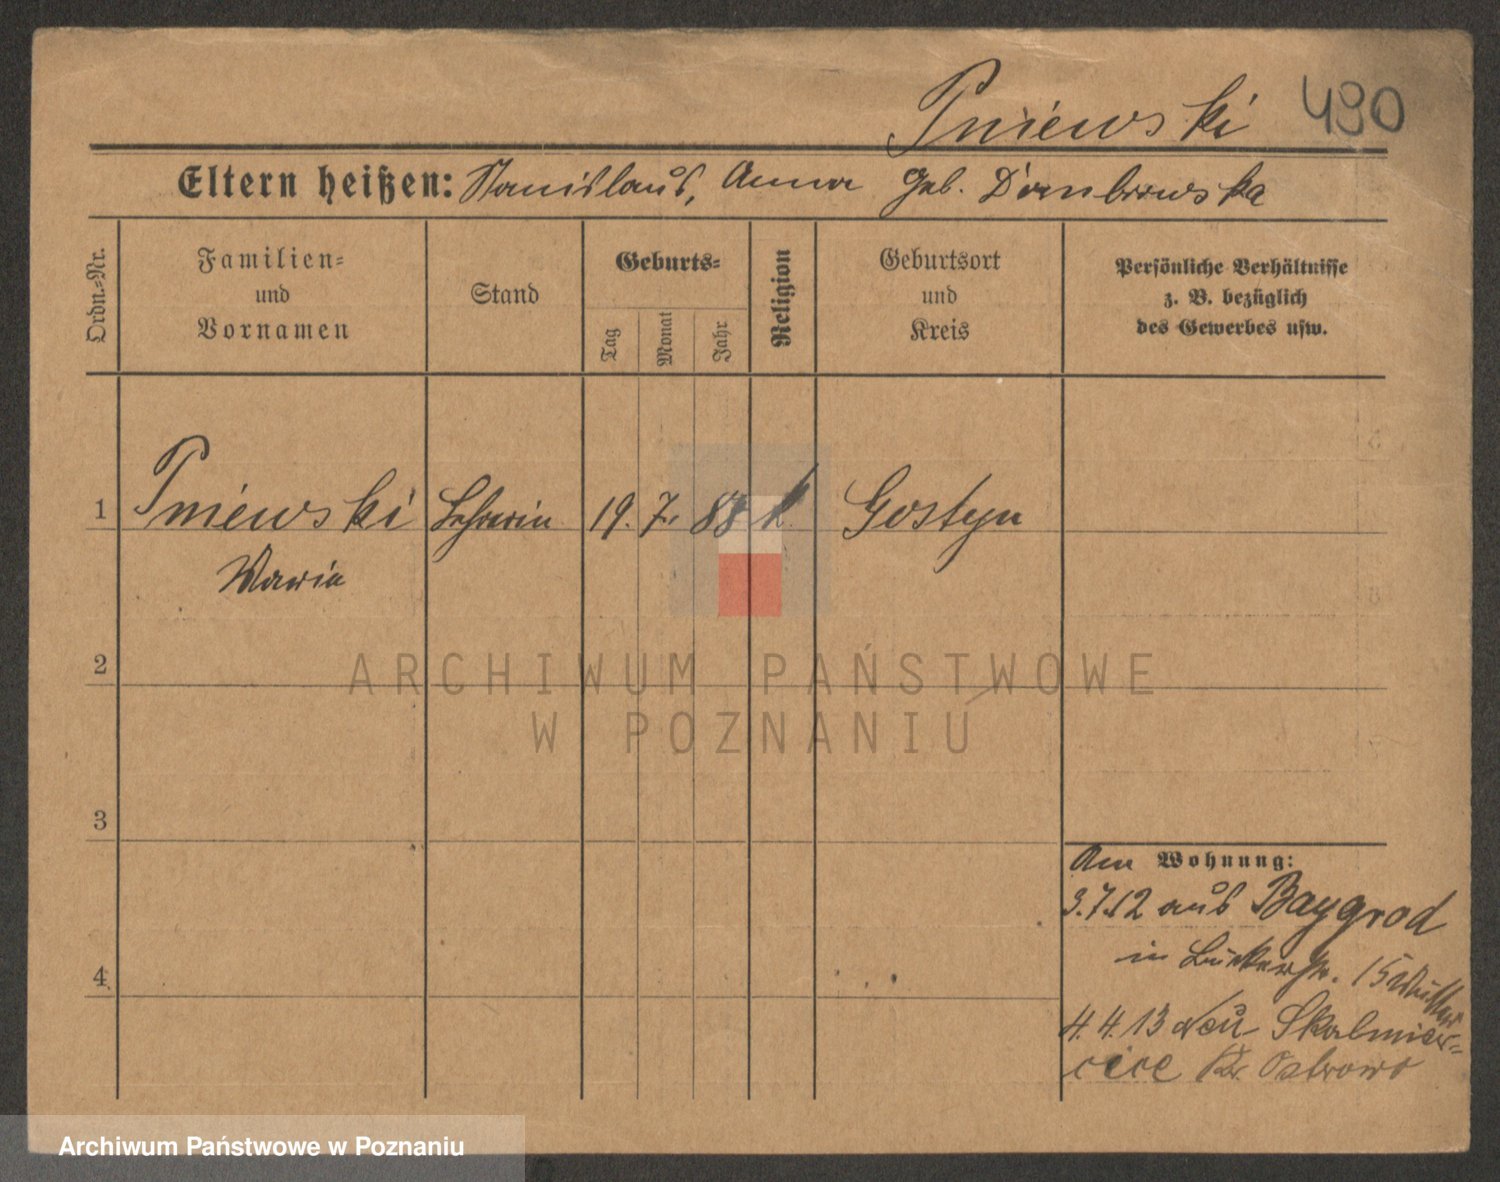 Pniewski 490
Eltern heißen: Stanislaus, Anna geb. Dombrowska
Ordn.-Nr.
Familien-
und
Vornamen
Stand
Geburts-
Tag
Monat
Jahr
Religion
Geburtsort
und
Kreis
Persönliche Verhältnisse
z. B. bezüglich
des Gewerbes usw.
1 Pniewski Lehrerin 19. 7. 88 k Gostyn
Maria
2
3
4
Am Wohnung:
3.7.12 aus Baygrod
in Bukerstr. 15
4.4.13 Skalmier-
Kr. Ostrowo
ARCHIWUM PAŃSTWOWE
W POZNANIU
Archiwum Państwowe w Poznaniu